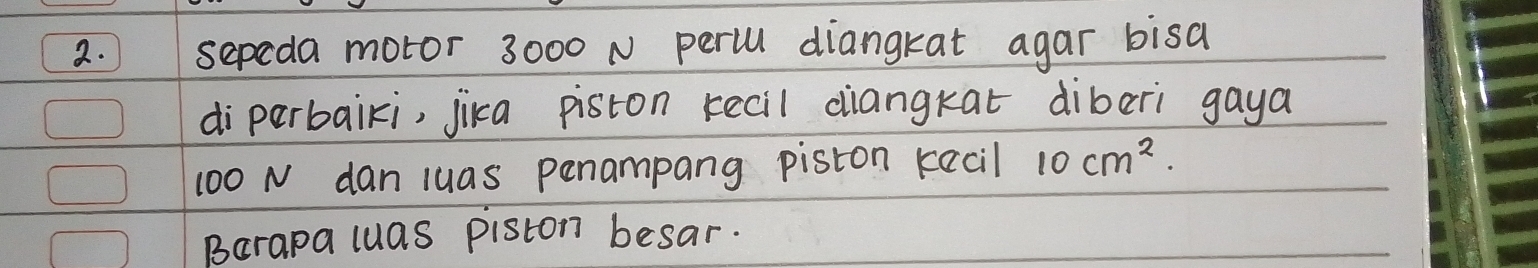 2. sepeda motor 3000 N perlu diangkat agar bisa
diperbaiki, jika piston kecil diangkat diberi gaya
100 N dan luas penampang piston kecil 10 cm².
Berapa luas piston besar.